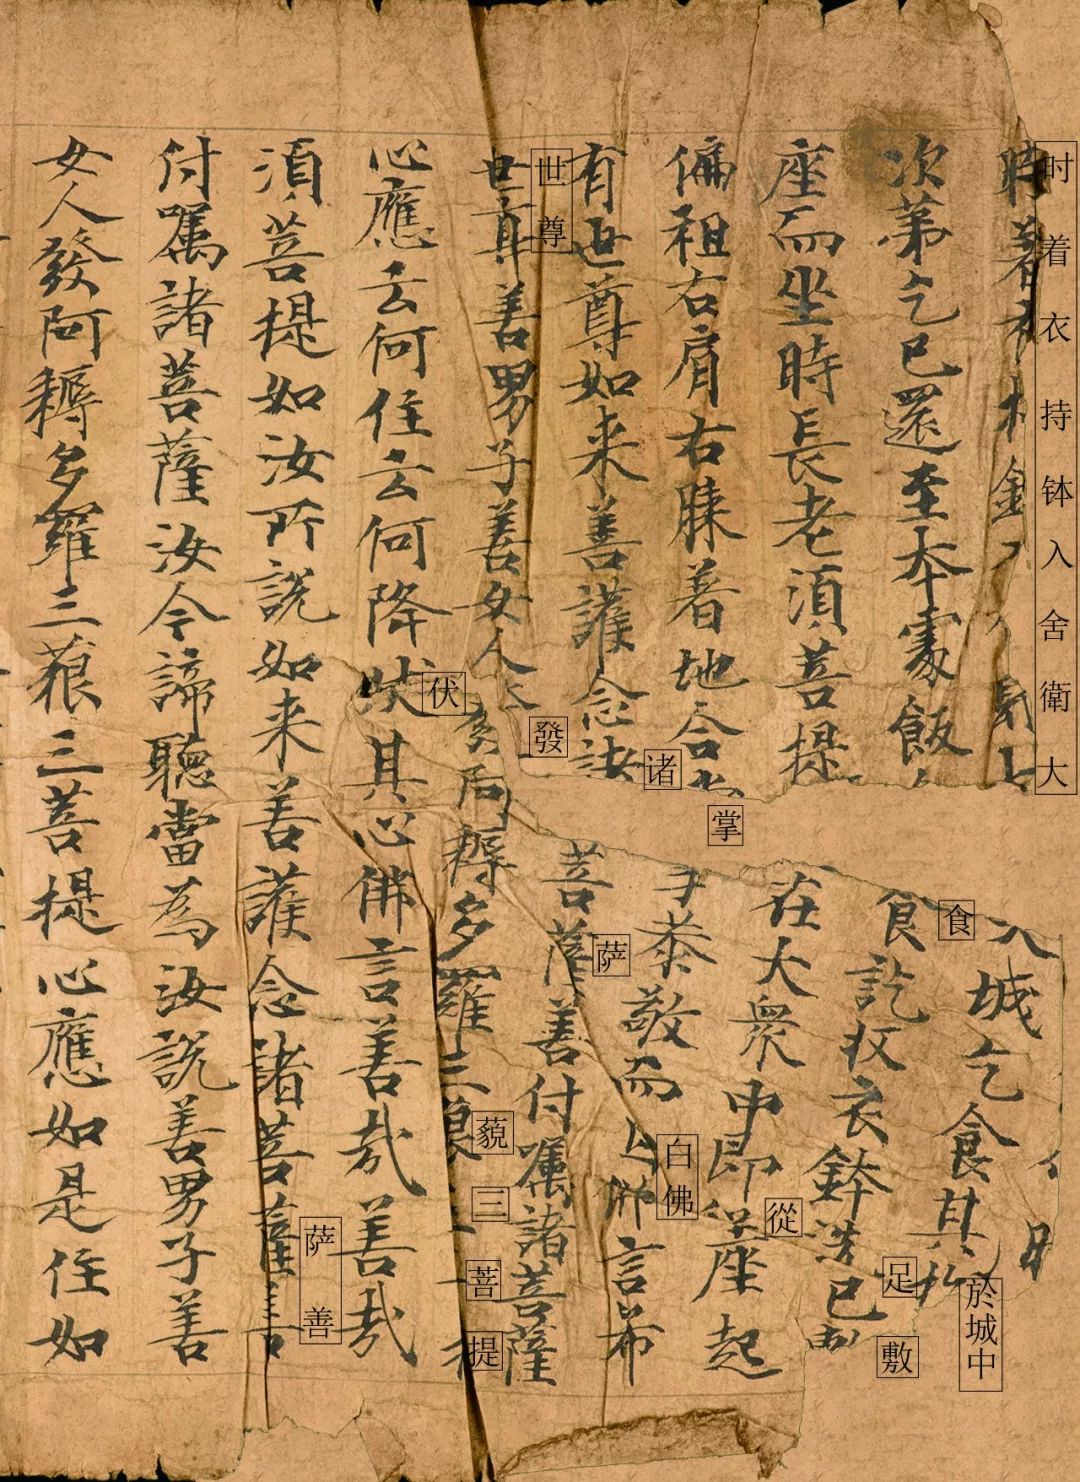 时着衣持钵入舍衛大
時著衣
城乞食其
於城中
次第乞已還至本處飯食訖收衣鉢洗已
食
足
敷
座而坐時長老須菩提在大衆中即從座起
從
偏袒右肩右膝着地合掌恭敬而白佛言希
掌
白佛
有世尊如来善護念諸菩薩善付囑諸菩薩
诸
萨
世尊善男子善女人發阿耨多羅三藐三菩提
世尊
發
藐三菩提
心應云何住云何降伏其心佛言善哉善哉
伏
須菩提如汝所說如来善護念諸菩薩善
萨善
付囑諸菩薩汝今諦聽當為汝說善男子善
女人發阿耨多羅三藐三菩提心應如是住如